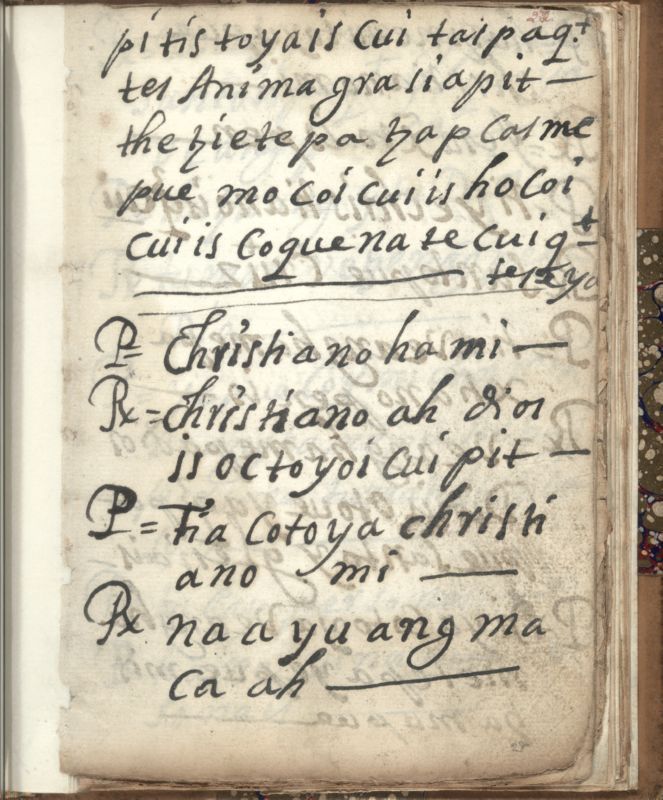 pitis toyais Cui taipaq.t
tes Anima grasiapit —
the zietepa zap Casme
pue mo Coi Cuiis ho Coi
cuiis Coquenate Cuiq–t
P= Christiano ha mi —
Rx= christiano ah dios
is octoyoi Cui pit —
P= Tia Cotoya christi
ano mi —
Rx na a yu ang ma
ca ah —